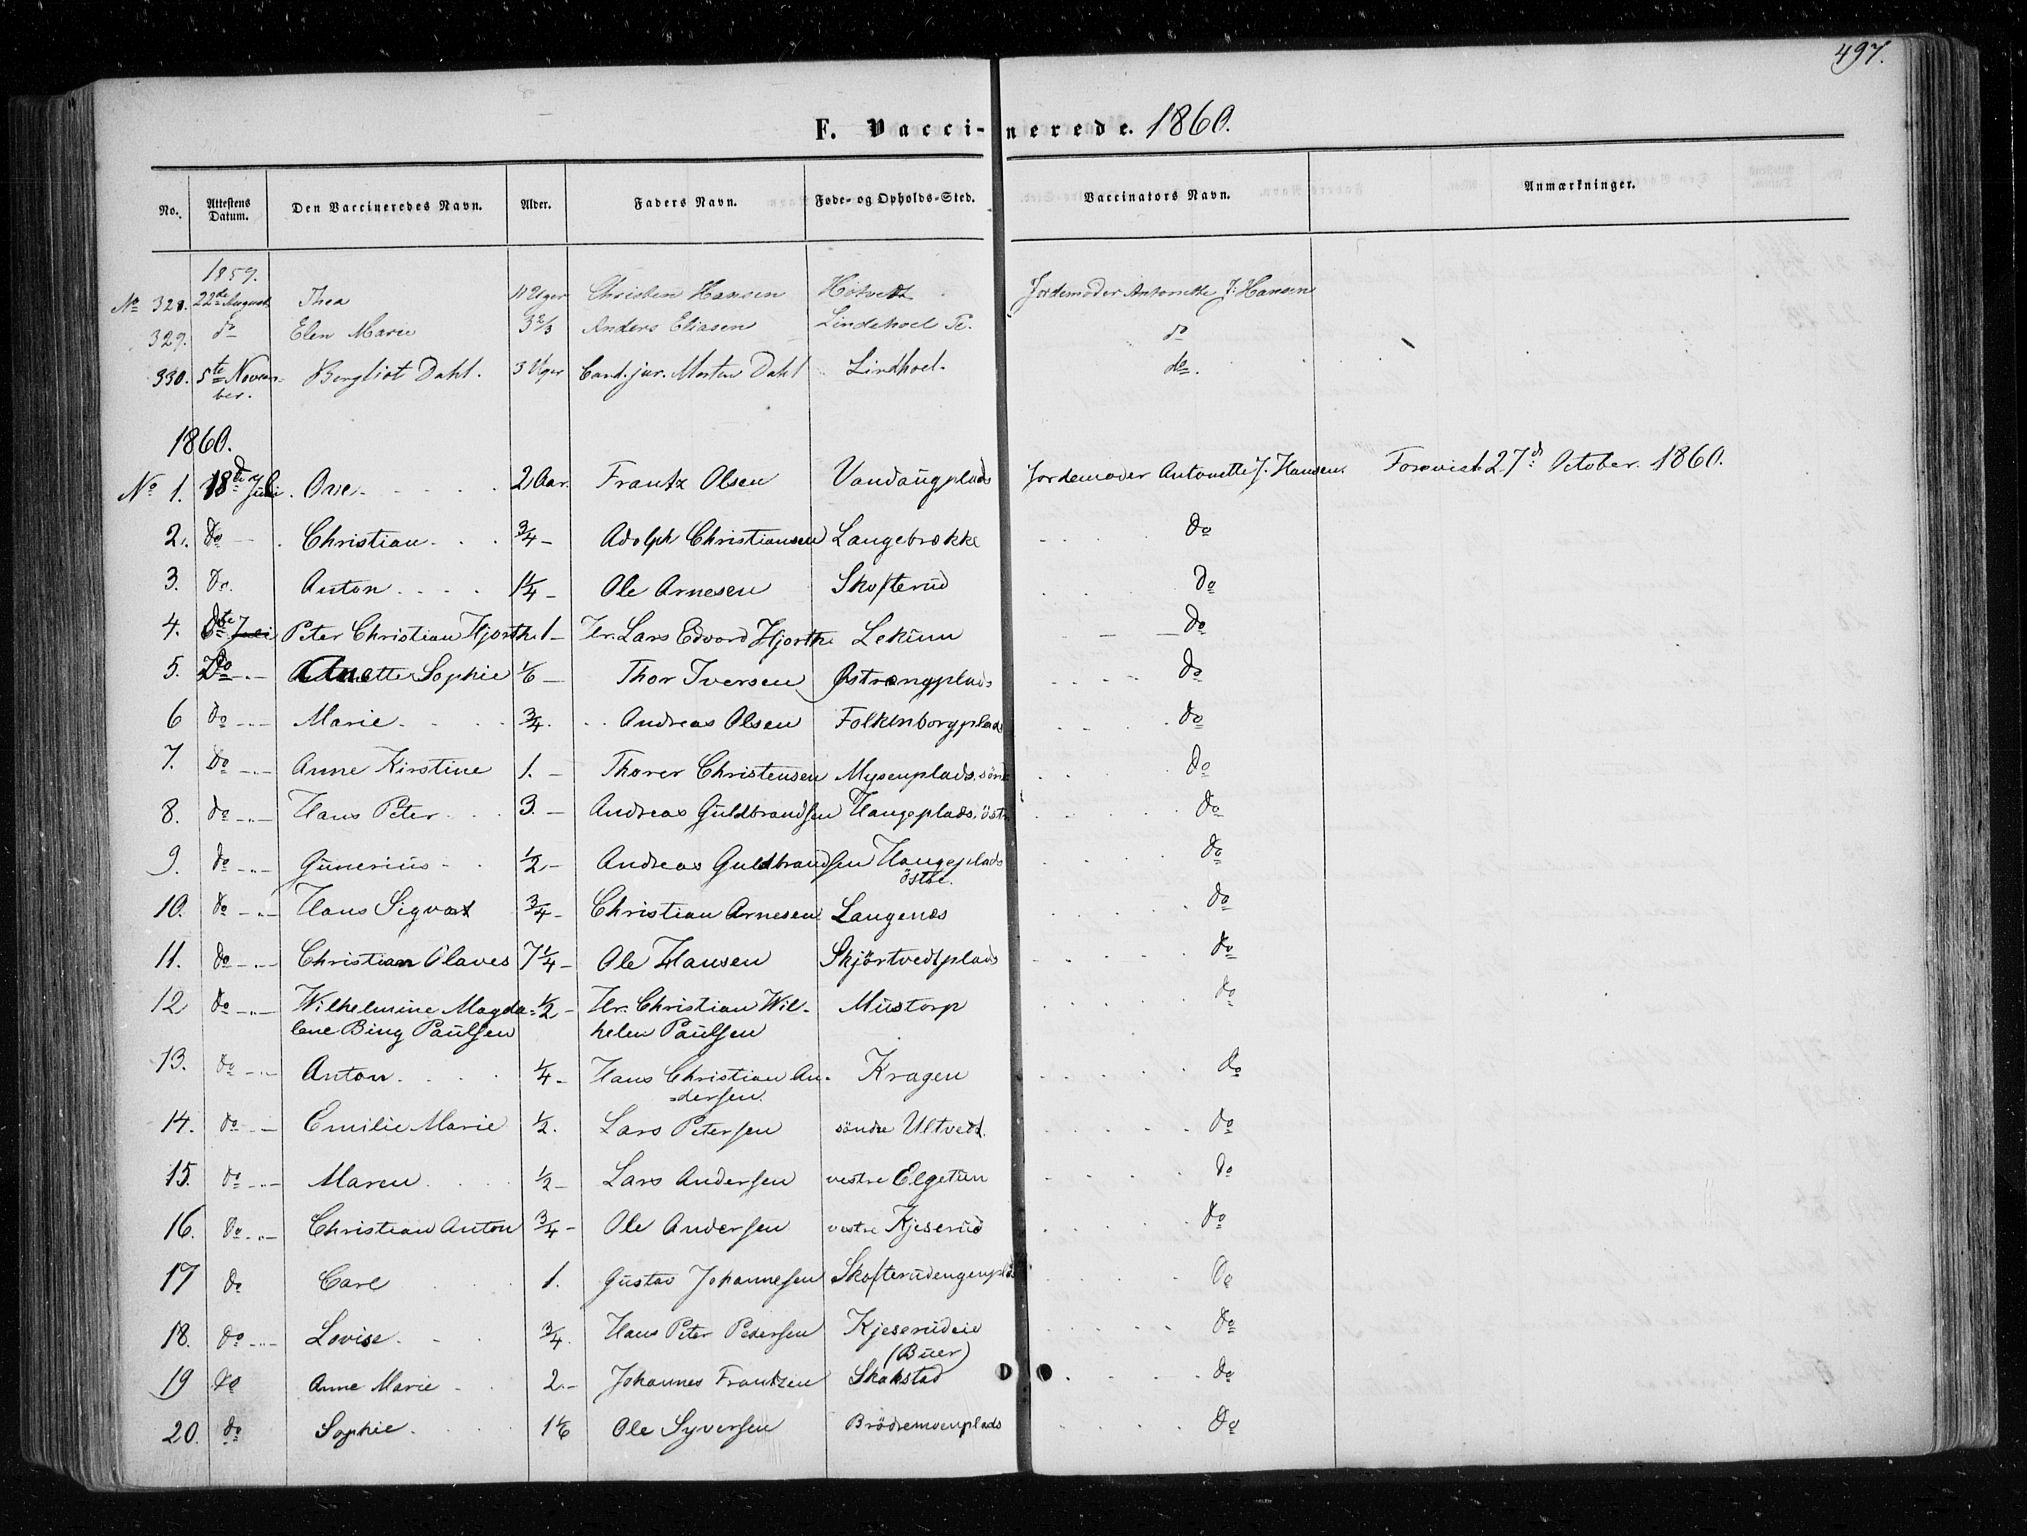 497.
F. Vaccinerede. 1860.
No. Attestens Datum. Den Vaccineredes Navn. Alder. Faders Navn. Føde- og Opholds-Sted. Vaccinators Navn. Anmærkninger.
1859.
No 328. 22de August Thea 11 Uger Christen Hansen Hotvedt Jordemoder Antonette J. Hansen
329. do Elen Marie 3 2/3 Anders Eliasen Lindehoel do
330. 5te Novem- Bergliot Dahl. 3 Uger Cand. jur. Morten Dahl Lindhoel. do.
ber.
1860.
No 1. 18de Juli. Ove. 2 Aar. Frantz Olsen Vandaugplads Jordemoder Antonette J. Hansen. Forevist 27d October. 1860.
2. do Christian. 3/4 Adolph Christiansen Langebrække do
3. do. Anton 1 1/4 Ole Arnesen Skofterud do
4. do Peter Christian Hjorth 1 Hr. Lars Edvard Hjorth Lekum do
5. do Anette Sophie 1/6 Thor Iversen Østrengplads do
6 do Marie. 3/4. Andreas Olsen Folkenborgplads do
7. do Anne Kirstine 1. Thorer Christensen Mysenplads. sönd do
8. do Hans Peter 3. Andreas Guldbrandsen Haugeplads. östr do
9. do Gunerius 1/2 Andreas Guldbrandsen Haugeplads do
östre.
10. do Hans Sigvart 3/4 Christian Arnesen Langenæs do
11. do Christian Olaves 7 1/4 Ole Hansen Skjörtvedtplads do
12 do Wilhelmine Magda= 1/2 Hr. Christian Wil- Mustorp do
lene Bing Paulsen helm Paulsen
13. do Anton. 1/4 Hans Christian An- Kragen do
=dersen.
14. do Emilie Marie 1/2. Lars Petersen söndre Ultvedt. do
15. do Maren 1/2 Lars Andersen vestre Elgetun do
16. do Christian Anton 3/4 Ole Andersen vestre Kjeserud do
17 do Carl 1. Gustav Johannesen Skofterudengenplds do
18. do Lovise. 3/4. Hans Peter Pedersen Kjeserudeie do
(Buer)
19 do Anne Marie 2. Johannes Frantzen Skakstad do
20. do Sophie. 1 1/6 Ole Syversen Brödremoenplads do